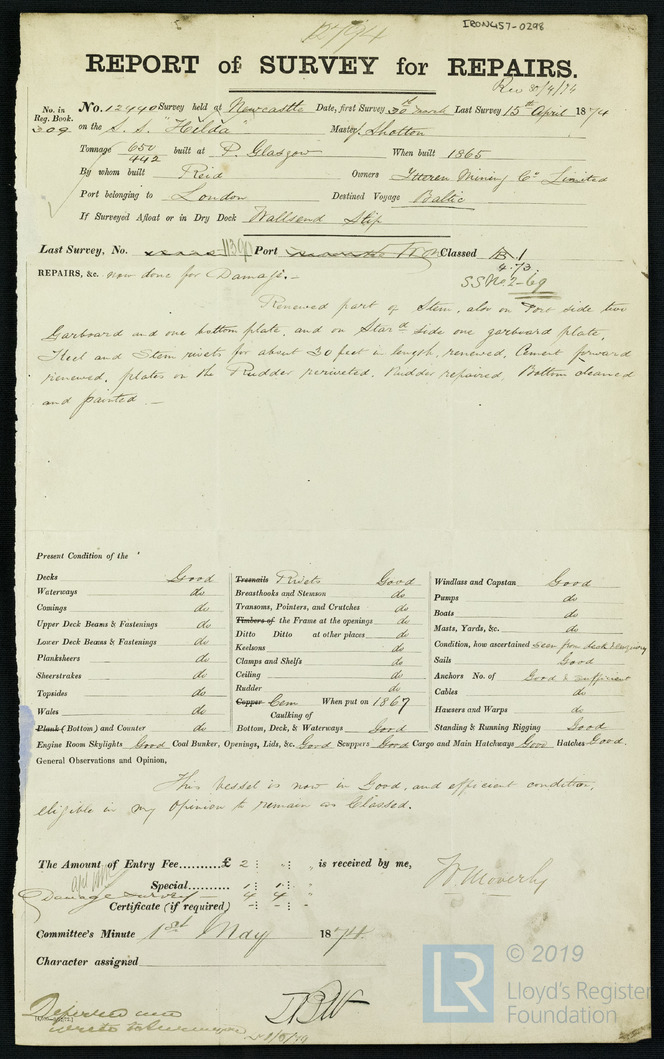 IRON457-0298
REPORT of SURVEY for REPAIRS.
No. in Reg. Book. No. 12440 Survey held at Newcastle Date, first Survey 30th March Last Survey 15th April 1874
309 on the S.S. "Hilda" Master J. Shotton
Tonnage 650/442 built at P. Glasgow When built 1865
By whom built Reid Owners Ytteren Mining Co. Limited
Port belonging to London Destined Voyage Baltic
If Surveyed Afloat or in Dry Dock Wallsend Slip
Last Survey, No. 11390 Port Classed 1
4.73
SS No 2-69
REPAIRS, &c. now done for Damage.-
Renewed part of Stem, also on Port side two
Garboard and one bottom plate, and on Stard side one garboard plate,
Keel and Stem rivets for about 30 feet in length, renewed, Cement forward
renewed, plates on the Rudder reriveted. Rudder repaired Bottom cleaned
and painted.-
Present Condition of the
Decks Good
Waterways do
Comings do
Upper Deck Beams & Fastenings do
Lower Deck Beams & Fastenings do
Planksheers do
Sheerstrakes do
Topsides do
Wales do
Plank (Bottom) and Counter do
Treenails Rivets Good
Breasthooks and Stemson do
Transoms, Pointers, and Crutches do
Timbers of the Frame at the openings do
Ditto Ditto at other places do
Keelsons do
Clamps and Shelfs do
Ceiling do
Rudder do
Copper Cem When put on 1867
Caulking of
Bottom, Deck, & Waterways Good
Windlass and Capstan Good
Pumps do
Boats do
Masts, Yards, &c. do
Condition, how ascertained seen from deck &
Sails Good
Anchors No. of Good & sufficient
Cables do
Hawsers and Warps do
Standing & Running Rigging Good
Engine Room Skylights Good Coal Bunker, Openings, Lids, &c. Good Scuppers Good Cargo and Main Hatchways Good Hatches Good.
General Observations and Opinion,
This vessel is now in Good, and efficient condition,
eligible in my Opinion to remain as Classed.
The Amount of Entry Fee..........£ 2 : " : " is received by me,
Special.......... 1 : 1 : "
Damage survey 4 4 "
Certificate (if required) - : - : -
Committee's Minute 1st May 1874.
Character assigned
© 2019
LR
Lloyd's Register
Foundation